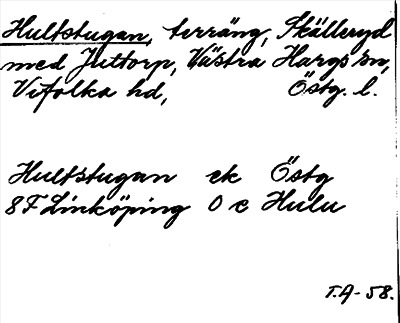 Hultstugan, terräng, Skälleryd
med Juttorp, Västra Hargs sn,
Vifolka hd, Östg. l.
Hultstugan ek Östg
8F Linköping 0 c Hulu
T.A-58.